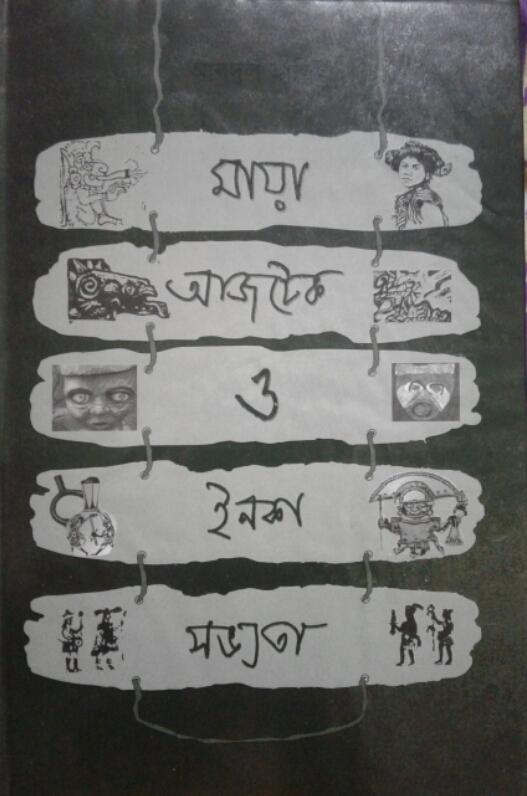 মায়া
আজটেক
ও
ইনকা
সভ্যতা